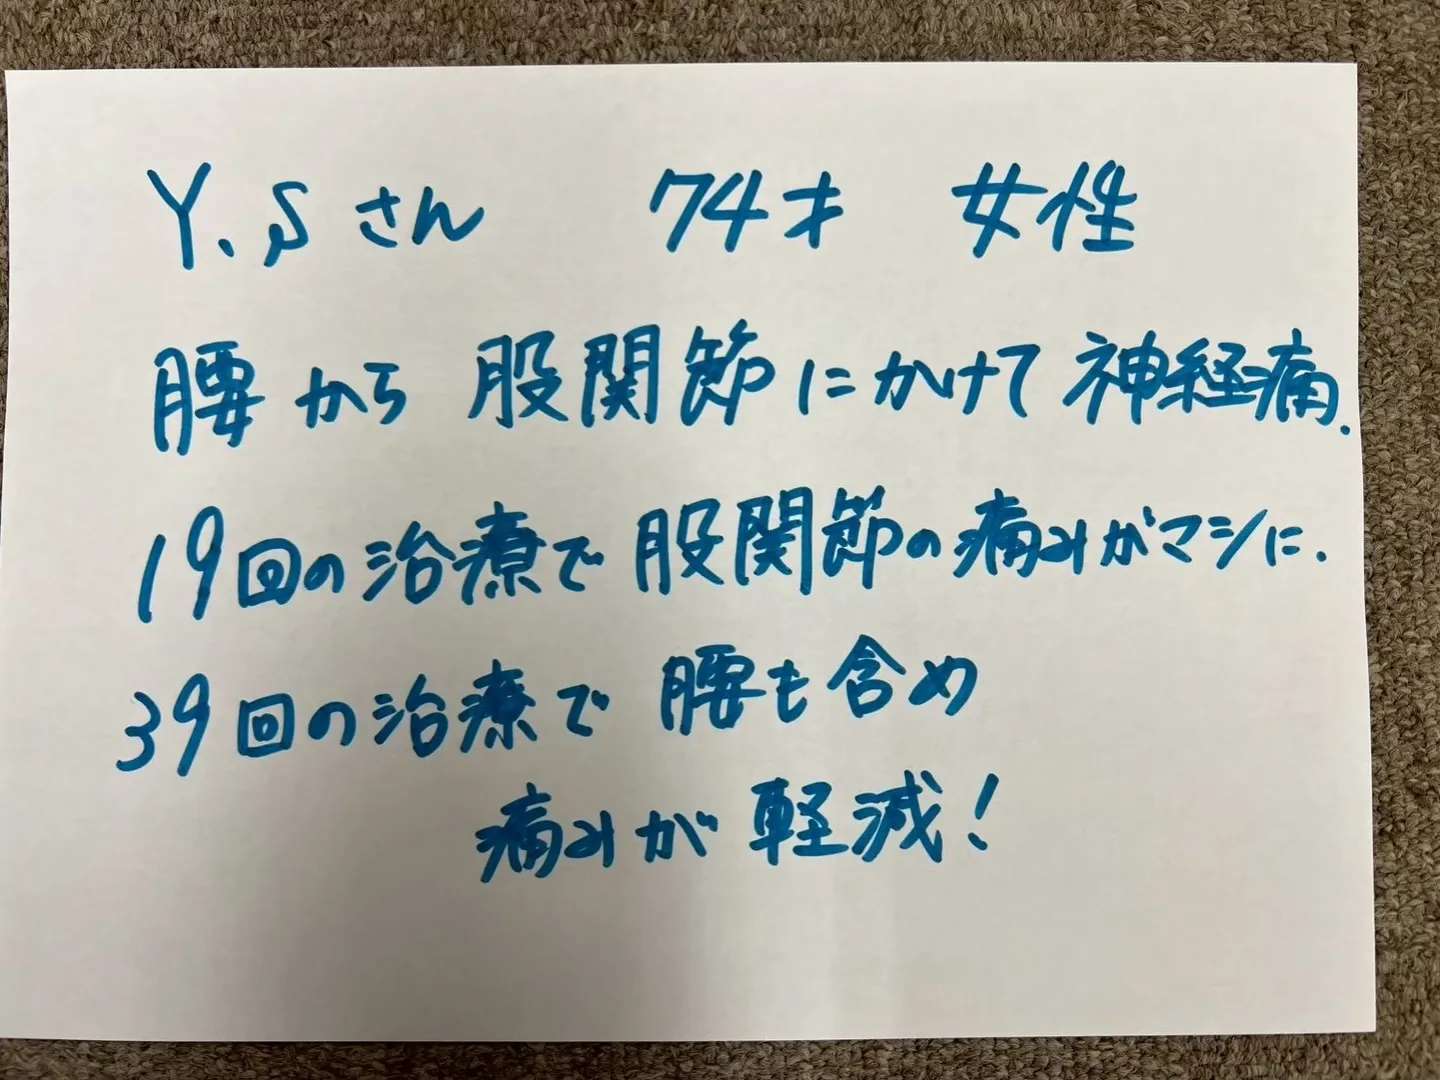 Y.Sさん 74才 女性
腰から股関節にかけて神経痛.
19回の治療で股関節の痛みがマシに.
39回の治療で腰も含め
痛みが軽減!